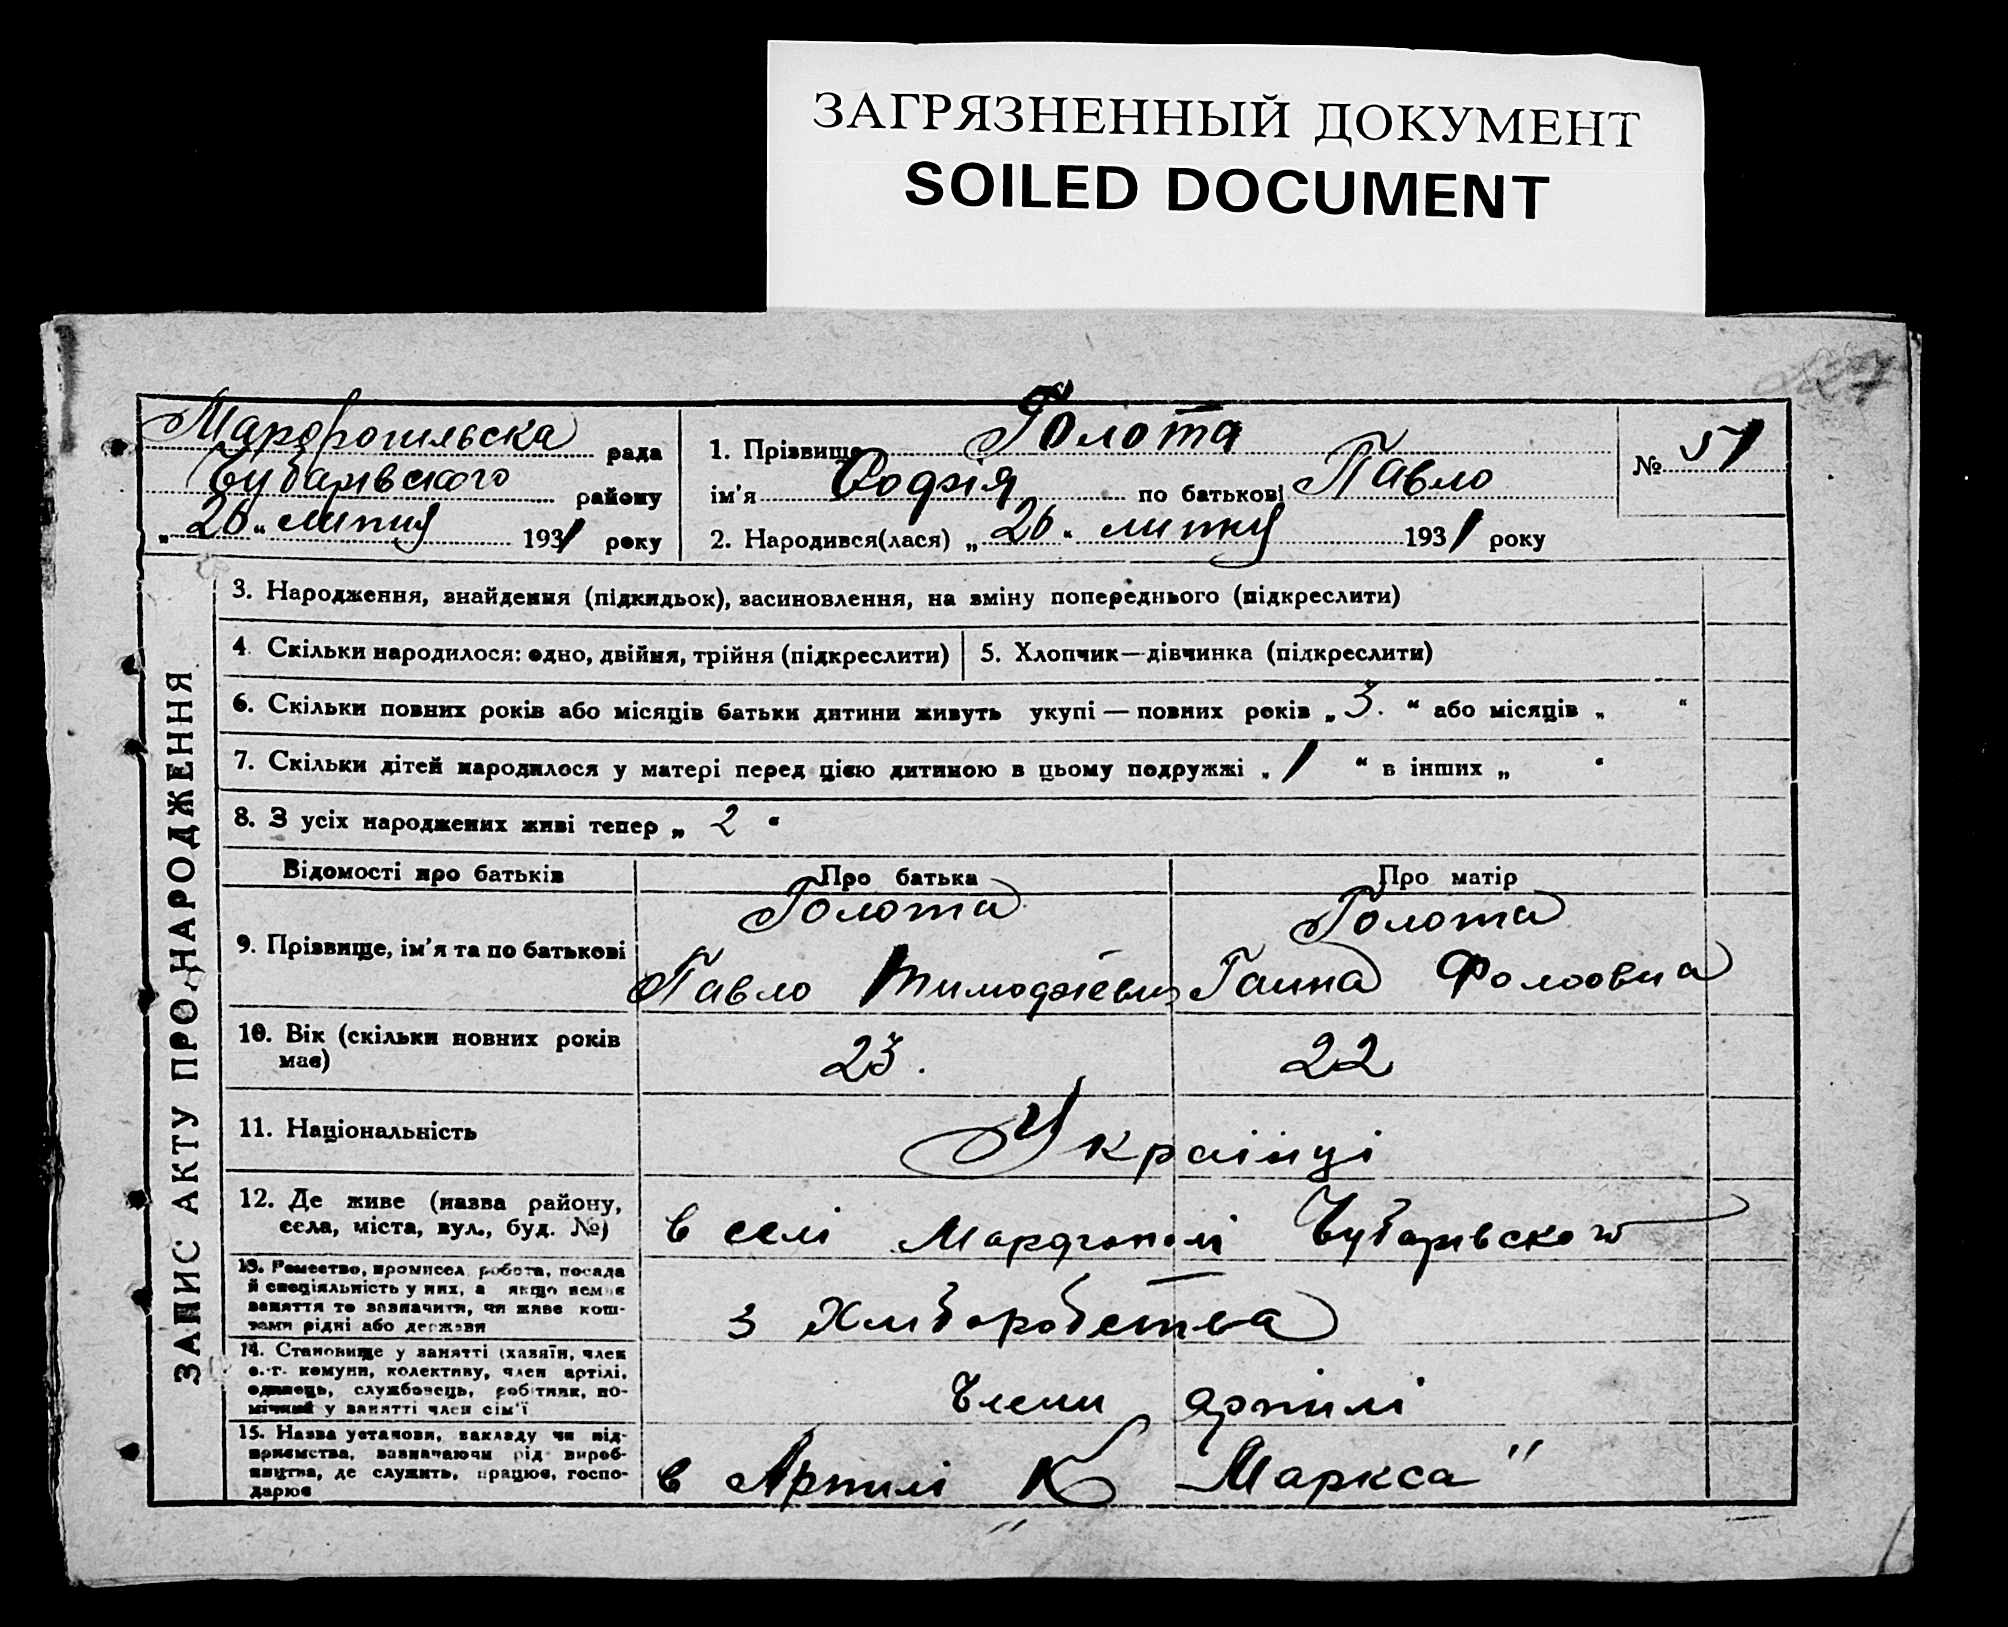 ЗАГРЯЗНЕННЫЙ ДОКУМЕНТ
SOILED DOCUMENT
Марфропильска рада
Чубарівского району
„26“ липня 1931 року
1. Прізвище Голота
ім'я Софія по батькові Павло
2. Народився(лася) „26“ липня 1931 року
№ 51
ЗАПИС АКТУ ПРО НАРОДЖЕННЯ
3. Народження, знайдення (підкидьок), засиновлення, на зміну попереднього (підкреслити)
4. Скільки народилося: одно, двійня, трійня (підкреслити)
5. Хлопчик—дівчинка (підкреслити)
6. Скільки повних років або місяців батьки дитини живуть укупі — повних років „3.“ або місяців „ “
7. Скільки дітей народилося у матері перед цією дитиною в цьому подружжі „1“ в інших „ “
8. З усіх народжених живі тепер „2“
Відомості про батьків
Про батька
Про матір
9. Прізвище, ім'я та по батькові
Голота
Павло Тимофієвич
Голота
Ганна
10. Вік (скільки повних років
має)
23.
22
11. Національність
Українці
12. Де живе (назва району,
села, міста, вул., буд. №)
в селі Марфополі Чубарівского
13. Ремество, промисел, робота, посада
й спеціяльність у них, а якщо немає
заняття то зазначити, чи живе кош-
тами рідні або держави
з Хліборобства
14. Становище у занятті (хазяїн, член
с.-г. комуни, колективу, член артілі,
одинець, службовець, робітник, по-
мічний у занятті член сім'ї
Члени артилі
15. Назва установи, закладу чи під-
приємства, зазначаючи рід вироб-
ництва, де служить, працює, госпо-
дарює
в Артилі „К Маркса“